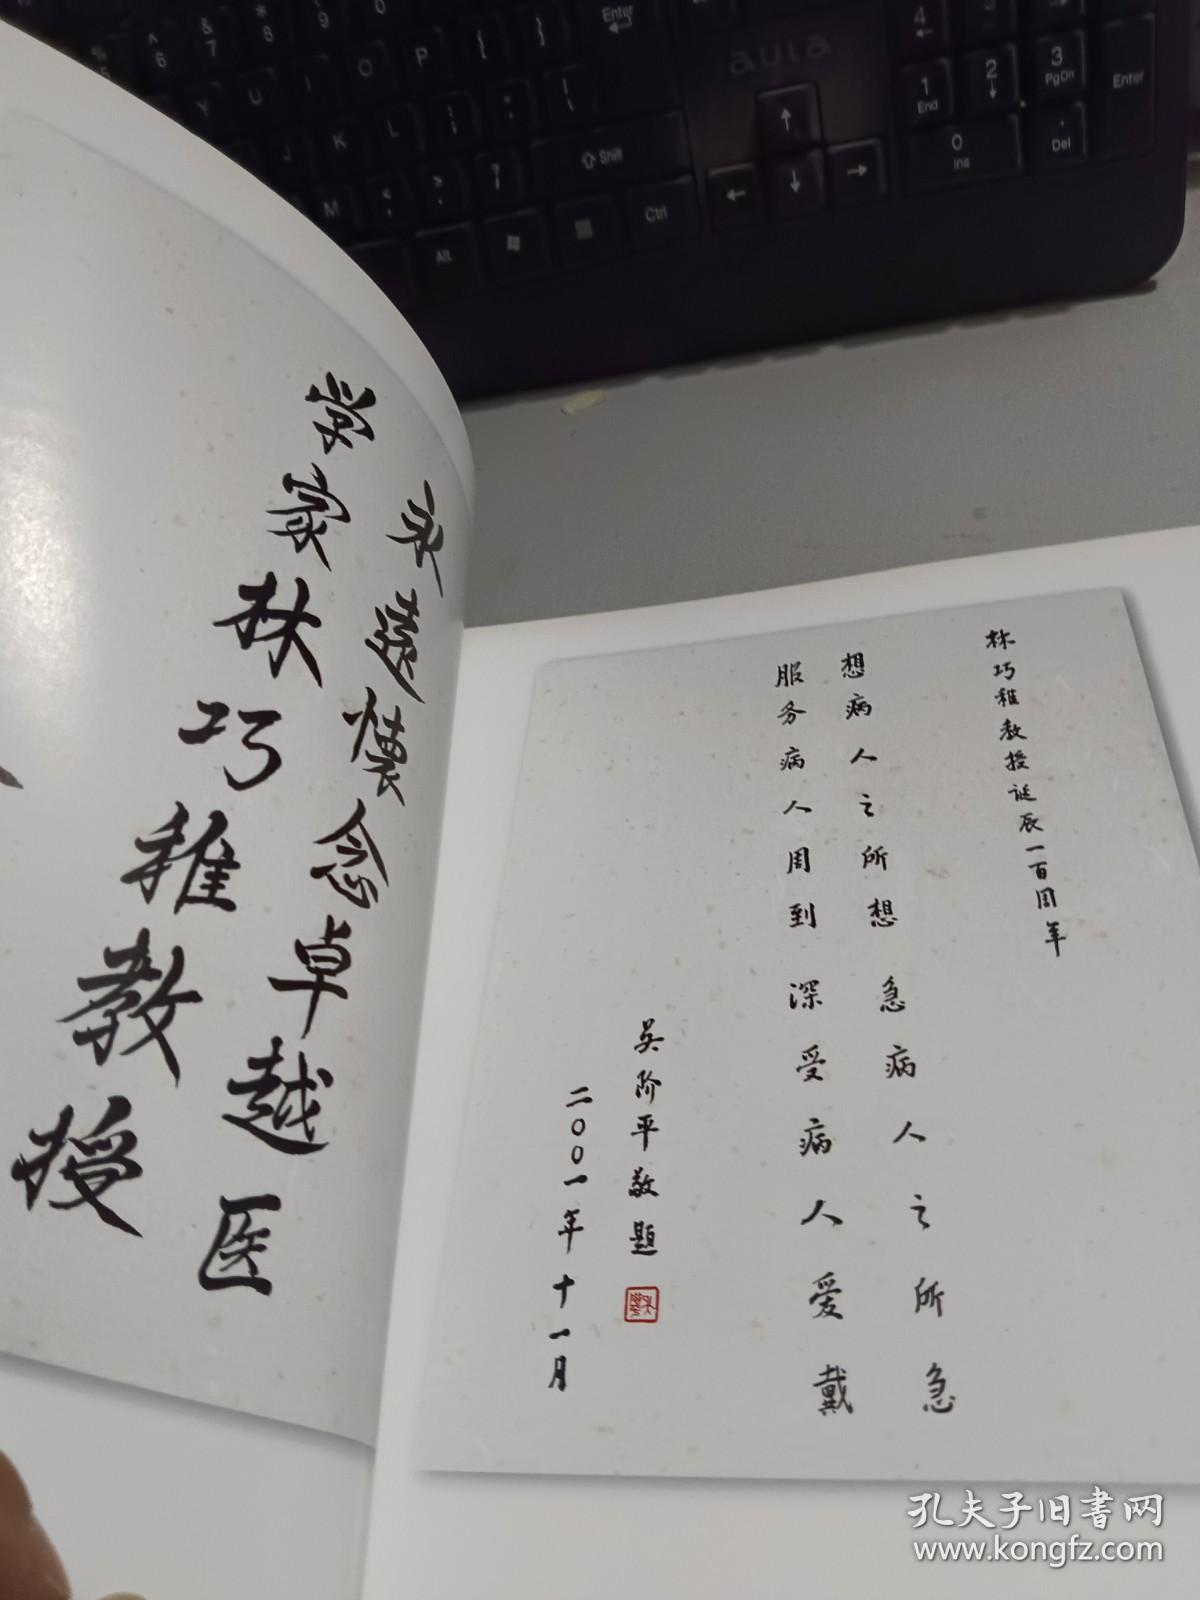 永遠懷念卓越医
学家林巧稚教授
林巧稚教授诞辰一百周年
想病人之所想 急病人之所急
服务病人周到 深受病人爱戴
吴阶平敬题
二〇〇一年十一月
aula
Enter
Shift
Alt
Ctrl
End
PgDn
Enter
Ins
Del
孔夫子旧书网
www.kongfz.com